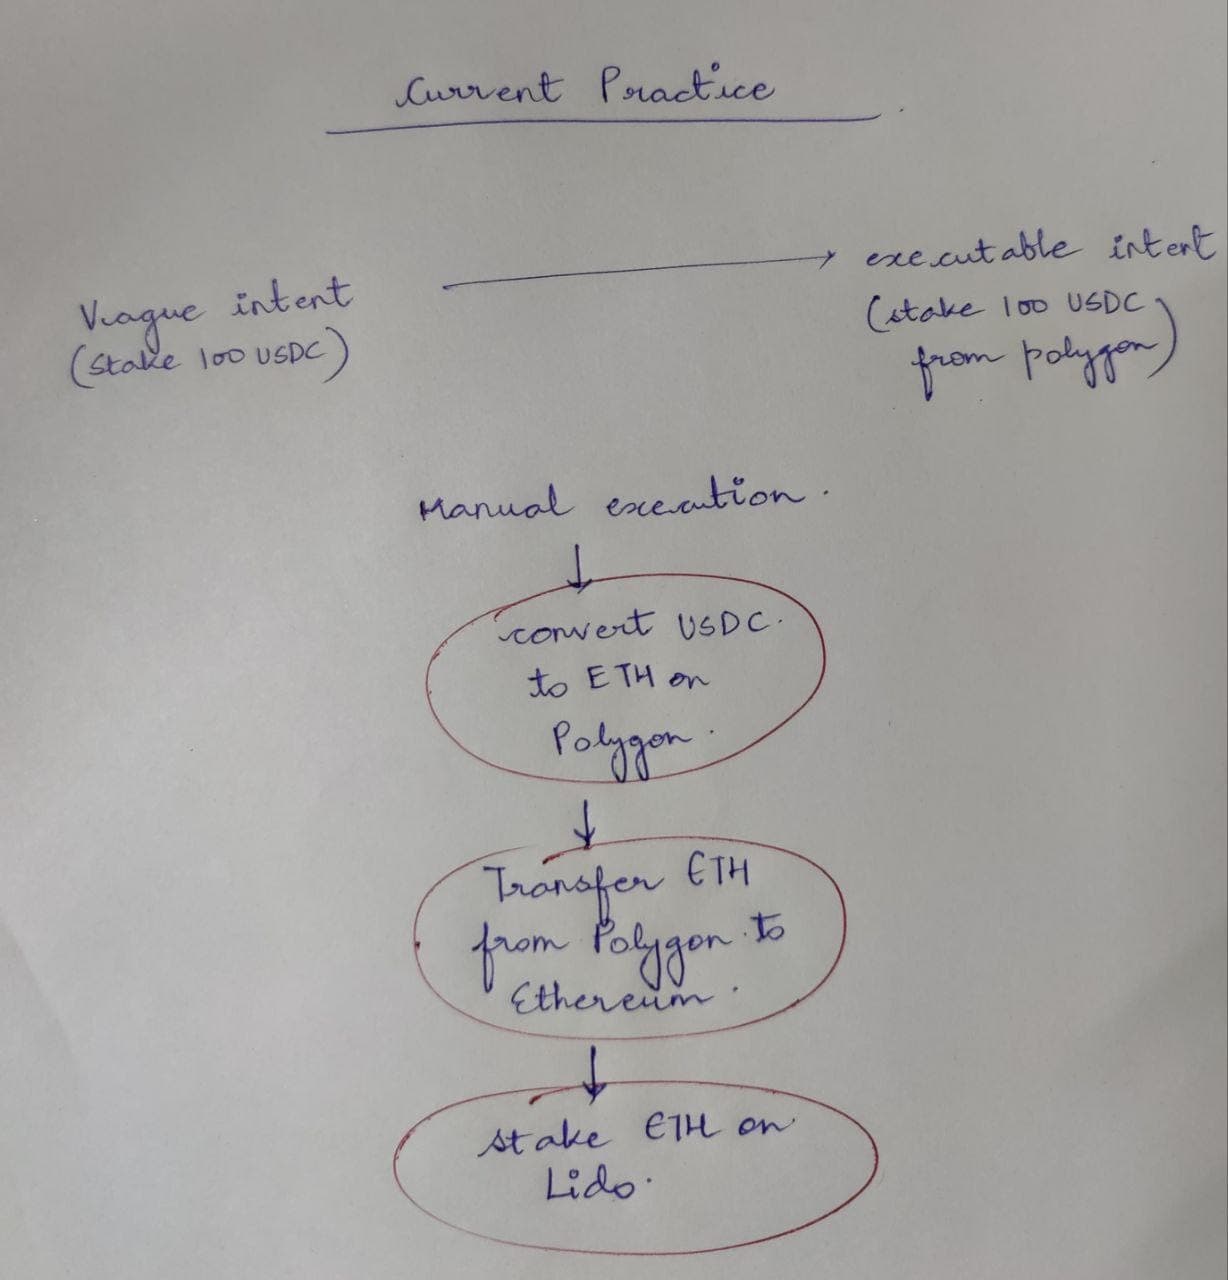 Current Practice
Vague intent
(Stake 100 USDC)
executable intent
(stake 100 USDC
from polygon)
Manual execution.
convert USDC.
to ETH on
Polygon.
Transfer ETH
from Polygon to
Ethereum.
stake ETH on
Lido.